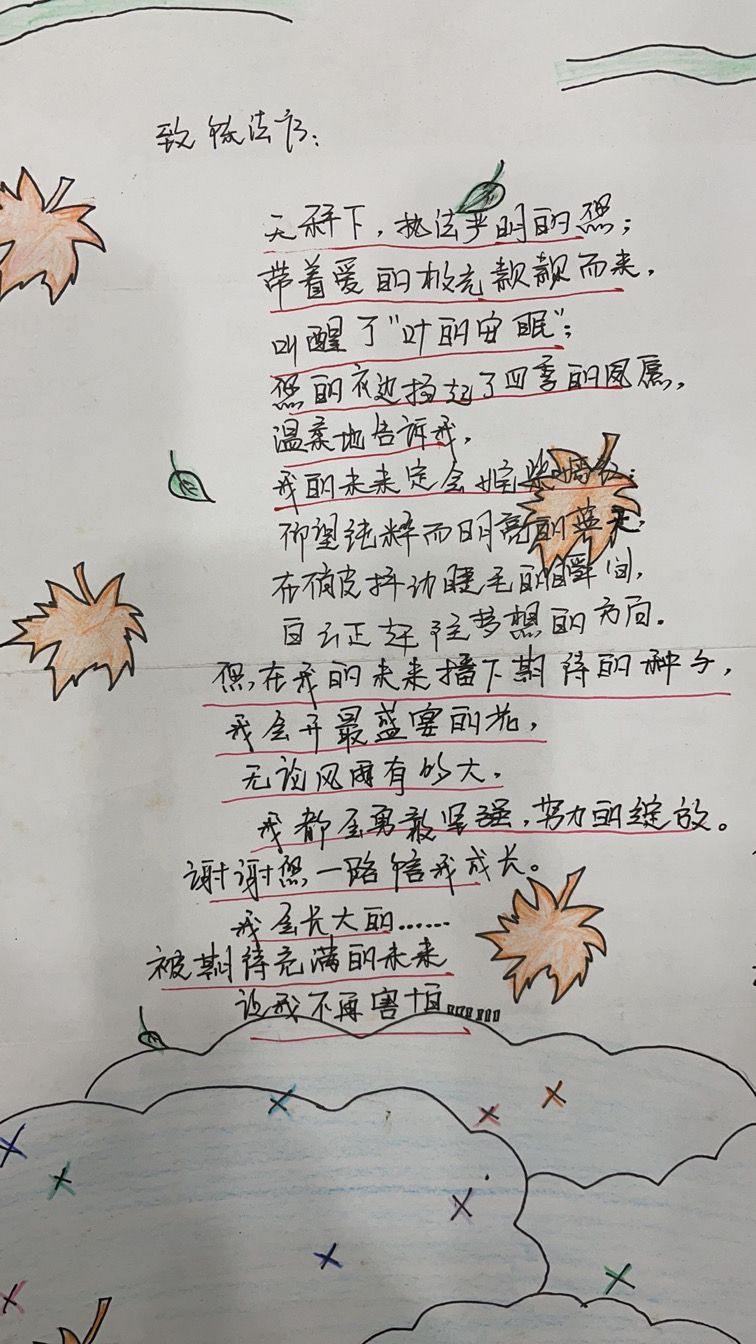 致徐法官：
天秤下，执法严明的您；
带着爱的披充款款而来，
叫醒了“叶的安眠”；
您的衣边扬起了四季的风属，
温柔地告诉我，
我的未来定会姹紫嫣红；
仰望纯粹而明亮的蓝天，
在俏皮抖动睫毛的瞬间，
白云正赶往梦想的方向。
您，在我的未来播下期待的种子，
我会开最盛宴的花，
无论风雨有的大，
我都会勇敢坚强，努力的绽放。
谢谢您一路陪我成长。
我会长大的……
被期待充满的未来
让我不再害怕……